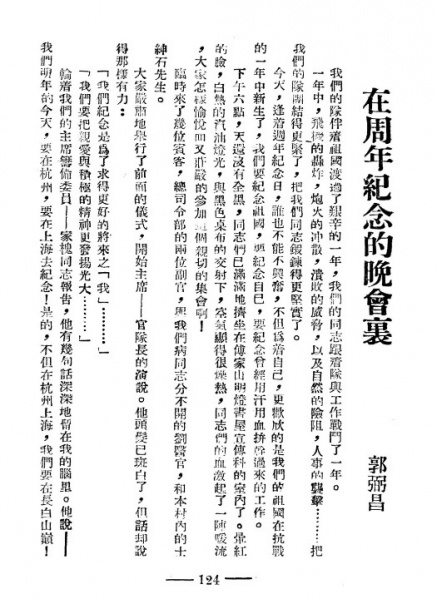 在周年紀念的晚會裏
郭弼昌
我們的隊伴着祖國渡過了艱辛的一年，我們的同志跟着隊與工作戰鬥了一年。
一年中，飛機的轟炸，炮火的冲散，潰敗的威脅，以及自然的險阻，人事的襲擊………把
我們的隊團結得更緊了，把我們同志鍛鍊得更堅實了。
今天，逢着週年紀念日，誰也不能不興奮，不但爲着自己，更歡欣的是我們的祖國在抗戰
的一年中新生了，我們要紀念祖國，要紀念自己，要紀念曾經用汗用血拚幹過來的工作。
下午六點，天還沒有全黑，同志們已滿滿地擠坐在傅家山明燈書屋宣傳科的室內了。暈紅
的臉，白熱的汽油燈光，與黑色桌布的交射下，空氣顯得很燥熱，同志們的血激起了一陣暖流
，大家怎樣愉悅而又莊嚴的參加這個親切的集會啊！
臨時來了幾位賓客，總司令部的兩位副官，與我們病同志分不開的劉醫官，和本村內的士
紳石先生。
大家嚴肅地舉行了前面的儀式，開始主席——官隊長的演說。他頭髮已斑白了，但話却說
得那樣有力：
「我們紀念是爲了求得更好的將來之「我」………」
「我們要把親愛與積極的精神更發揚光大………」
輪着我們的主席團倫委員——家槐同志報告，他有幾句話深深地留在我的腦里。他說——
我們明年的今天，要在杭州，要在上海去紀念！是的，不但在杭州上海，我們要在長白山巔！
——124——